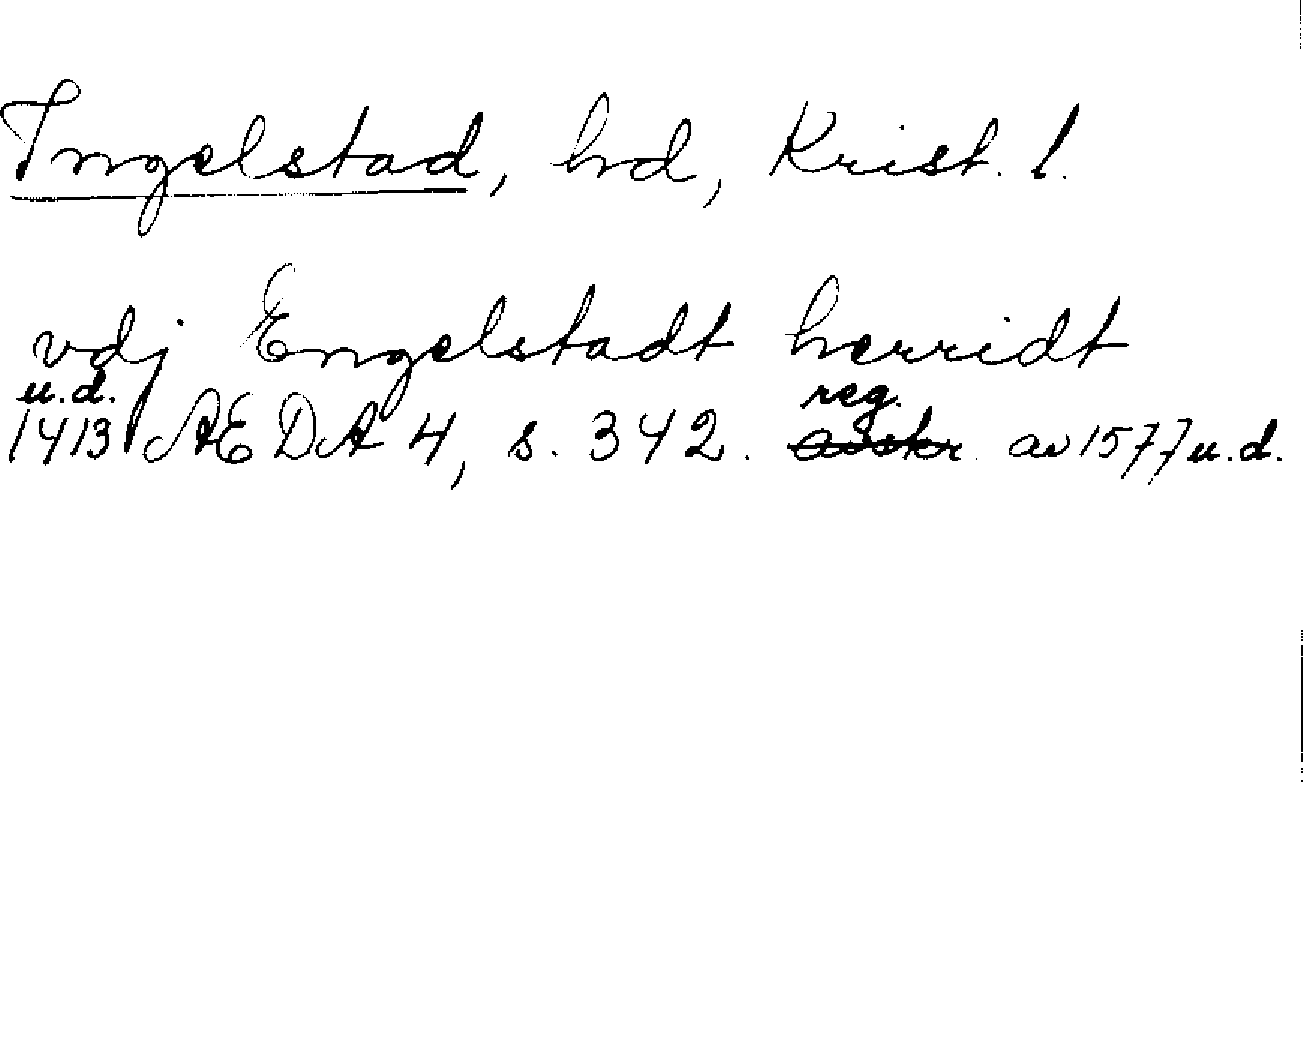 Ingelstad, hd, Krist. l.
vdj Engelstadt herridt
u.d. reg.
1413 AEDA 4, s. 342. avskr. av 1577 u.d.